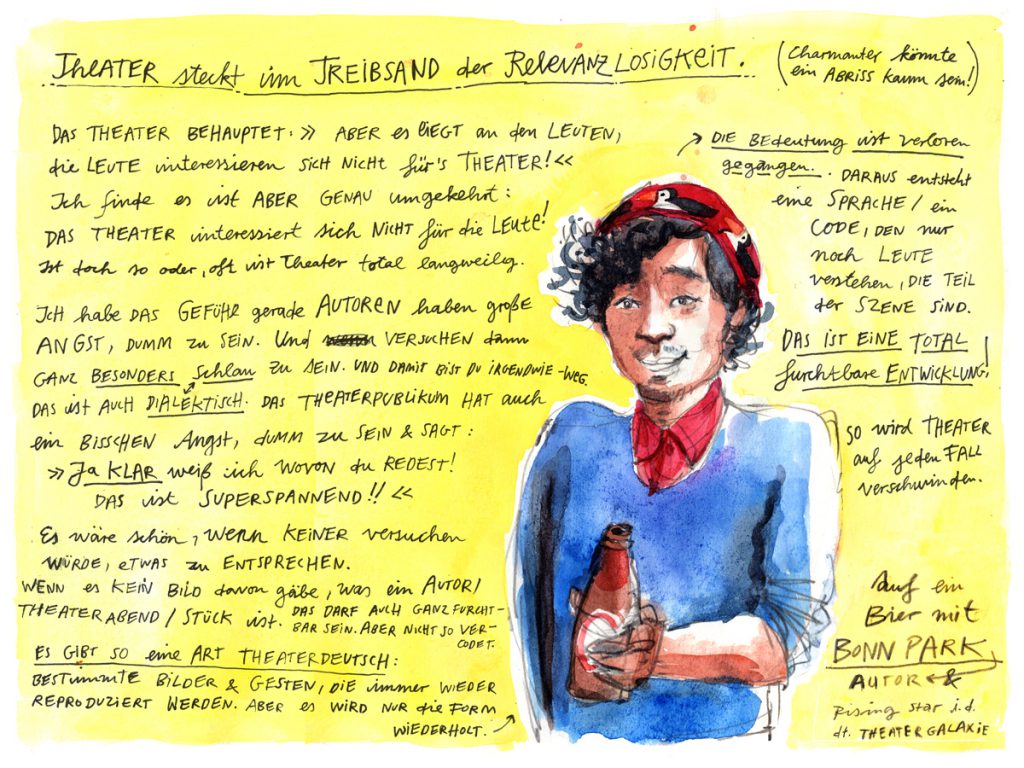 THEATER steckt im TREIBSAND der RELEVANZLOSIGKEIT.
(Charmanter könnte
ein ABRISS kaum sein!)
DAS THEATER BEHAUPTET: » ABER es LIEGT an den LEUTEN,
die LEUTE interessieren SICH NICHT für's THEATER! «
Ich finde es ist ABER GENAU umgekehrt:
DAS THEATER interessiert sich NICHT für die LEUTE!
Ist doch so oder, oft ist Theater total langweilig.
ICH habe DAS GEFÜHL gerade AUTOREN haben große
ANGST, DUMM zu SEIN. Und VERSUCHEN dann
GANZ BESONDERS schlau zu SEIN. UND DAMIT BIST DU IRGENDWIE -weg.
DAS ist AUCH DIALEKTISCH. DAS THEATERPUBLIKUM HAT auch
ein BISSCHEN Angst, DUMM zu SEIN & SAGT:
» Ja KLAR weiß ich WOVON du REDEST!
DAS ist SUPERSPANNEND!! «
Es wäre schön, wenn KEINER versuchen
WÜRDE, etwas zu ENTSPRECHEN.
WENN es KEIN BILD davon gäbe, was ein AUTOR/
THEATERABEND / STÜCK ist. DAS DARF AUCH GANZ FURCHT-
BAR SEIN. ABER NICHT SO VER-
CODET.
ES GIBT SO eine ART THEATERDEUTSCH:
BESTIMMTE BILDER & GESTEN, DIE immer WIEDER
REPRODUZIERT WERDEN. ABER es WIRD NUR die FORM
WIEDERHOLT.
DIE BEDEUTUNG ist verloren
gegangen. DARAUS entsteht
eine SPRACHE / ein
CODE, DEN nur
noch LEUTE
verstehen, DIE TEIL
der SZENE SIND.
DAS IST EINE TOTAL
furchtbare ENTWICKLUNG!
SO wird THEATER
auf jeden FALL
verschwinden.
Auf ein
Bier mit
BONN PARK,
AUTOR &
Rising Star i.d.
dt. THEATERGALAXIE